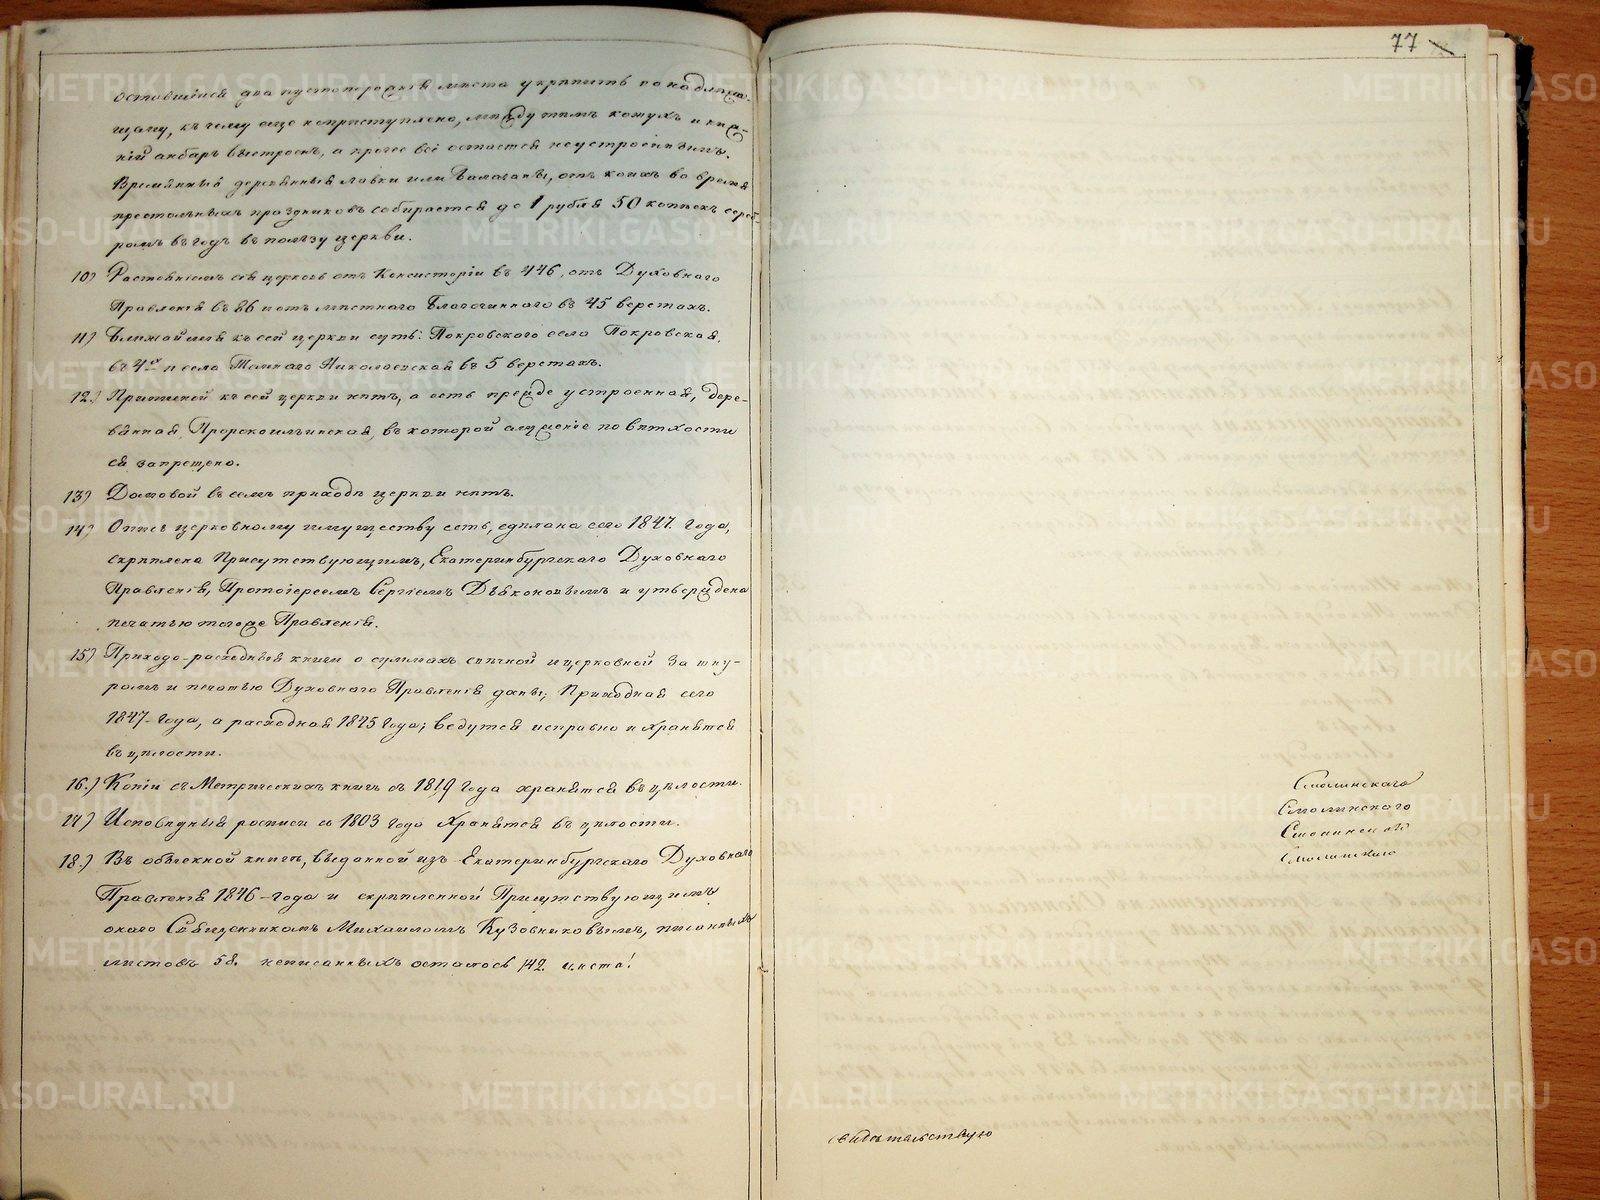 77
оставшіися два пустопорожнія мѣста укрѣпить по надлежа-
щему, къ чему еще неприступлено, между тѣмъ кожухъ и
анбаръ выстроенъ, а прочее всё остается неустроеннымъ.
Временныя деревянныя лавки или балаганы, отъ коихъ во время
престольныхъ праздниковъ собирается до 1 рубля 50 копѣекъ сереб-
ромъ въ годъ въ пользу церкви.
10) Разстояніемъ сія церковь отъ Консисторіи въ 446, отъ Духовнаго
Правленія въ 86 и отъ мѣстнаго Благочиннаго въ 45 верстахъ.
11) Ближайшія къ сей церкви суть: Покровскаго села Покровская,
въ 4х и села Николаевская въ 5 верстахъ.
12.) Приписной къ сей церкви нѣтъ, а есть прежде устроенная, дере-
вянная, Пророкоильинская, въ которой служеніе по ветхости
ея запрещено.
13) Домовой въ семъ приходѣ церкви нѣтъ.
14) Опись церковному имуществу есть, сдѣлана сего 1847 года,
скрѣплена Присутствующимъ, Екатеринбургскаго Духовнаго
Правленія, Протоіереемъ Сергіемъ Дьяконовымъ и утверждена
печатью тогоже Правленія.
15) Приходо-расходныя книги о суммахъ свѣчной и церковной за шну-
ромъ и печатью Духовнаго Правленія даны; Приходная сего
1847 года, а расходная 1845 года; ведутся исправно и хранятся
въ цѣлости.
16.) Копіи съ Метрическихъ книгъ съ 1819 года хранятся въ цѣлости.
17) Исповѣдныя росписи съ 1803 года хранятся въ цѣлости.
18.) Въ обыскной книгѣ, выданной изъ Екатеринбургскаго Духовнаго
Правленія 1846 года и скрѣпленной Присутствующимъ
онаго Священникомъ Михаиломъ Кузовниковымъ, писанныхъ
листовъ 58. неписанныхъ осталось 142 листа.
Смолинскаго
Смолинскаго
Смолинскаго
Смолинскаго
свидѣтельствую
METRIKI.GASO-URAL.RU